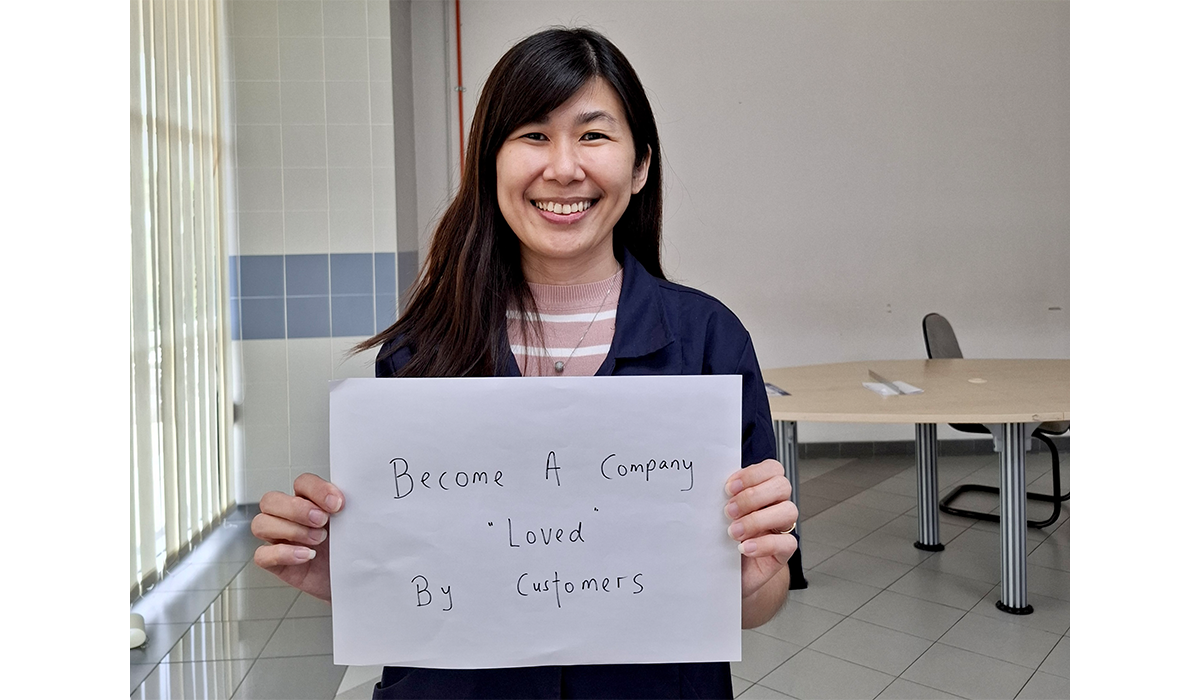 Become A Company
"Loved"
By Customers